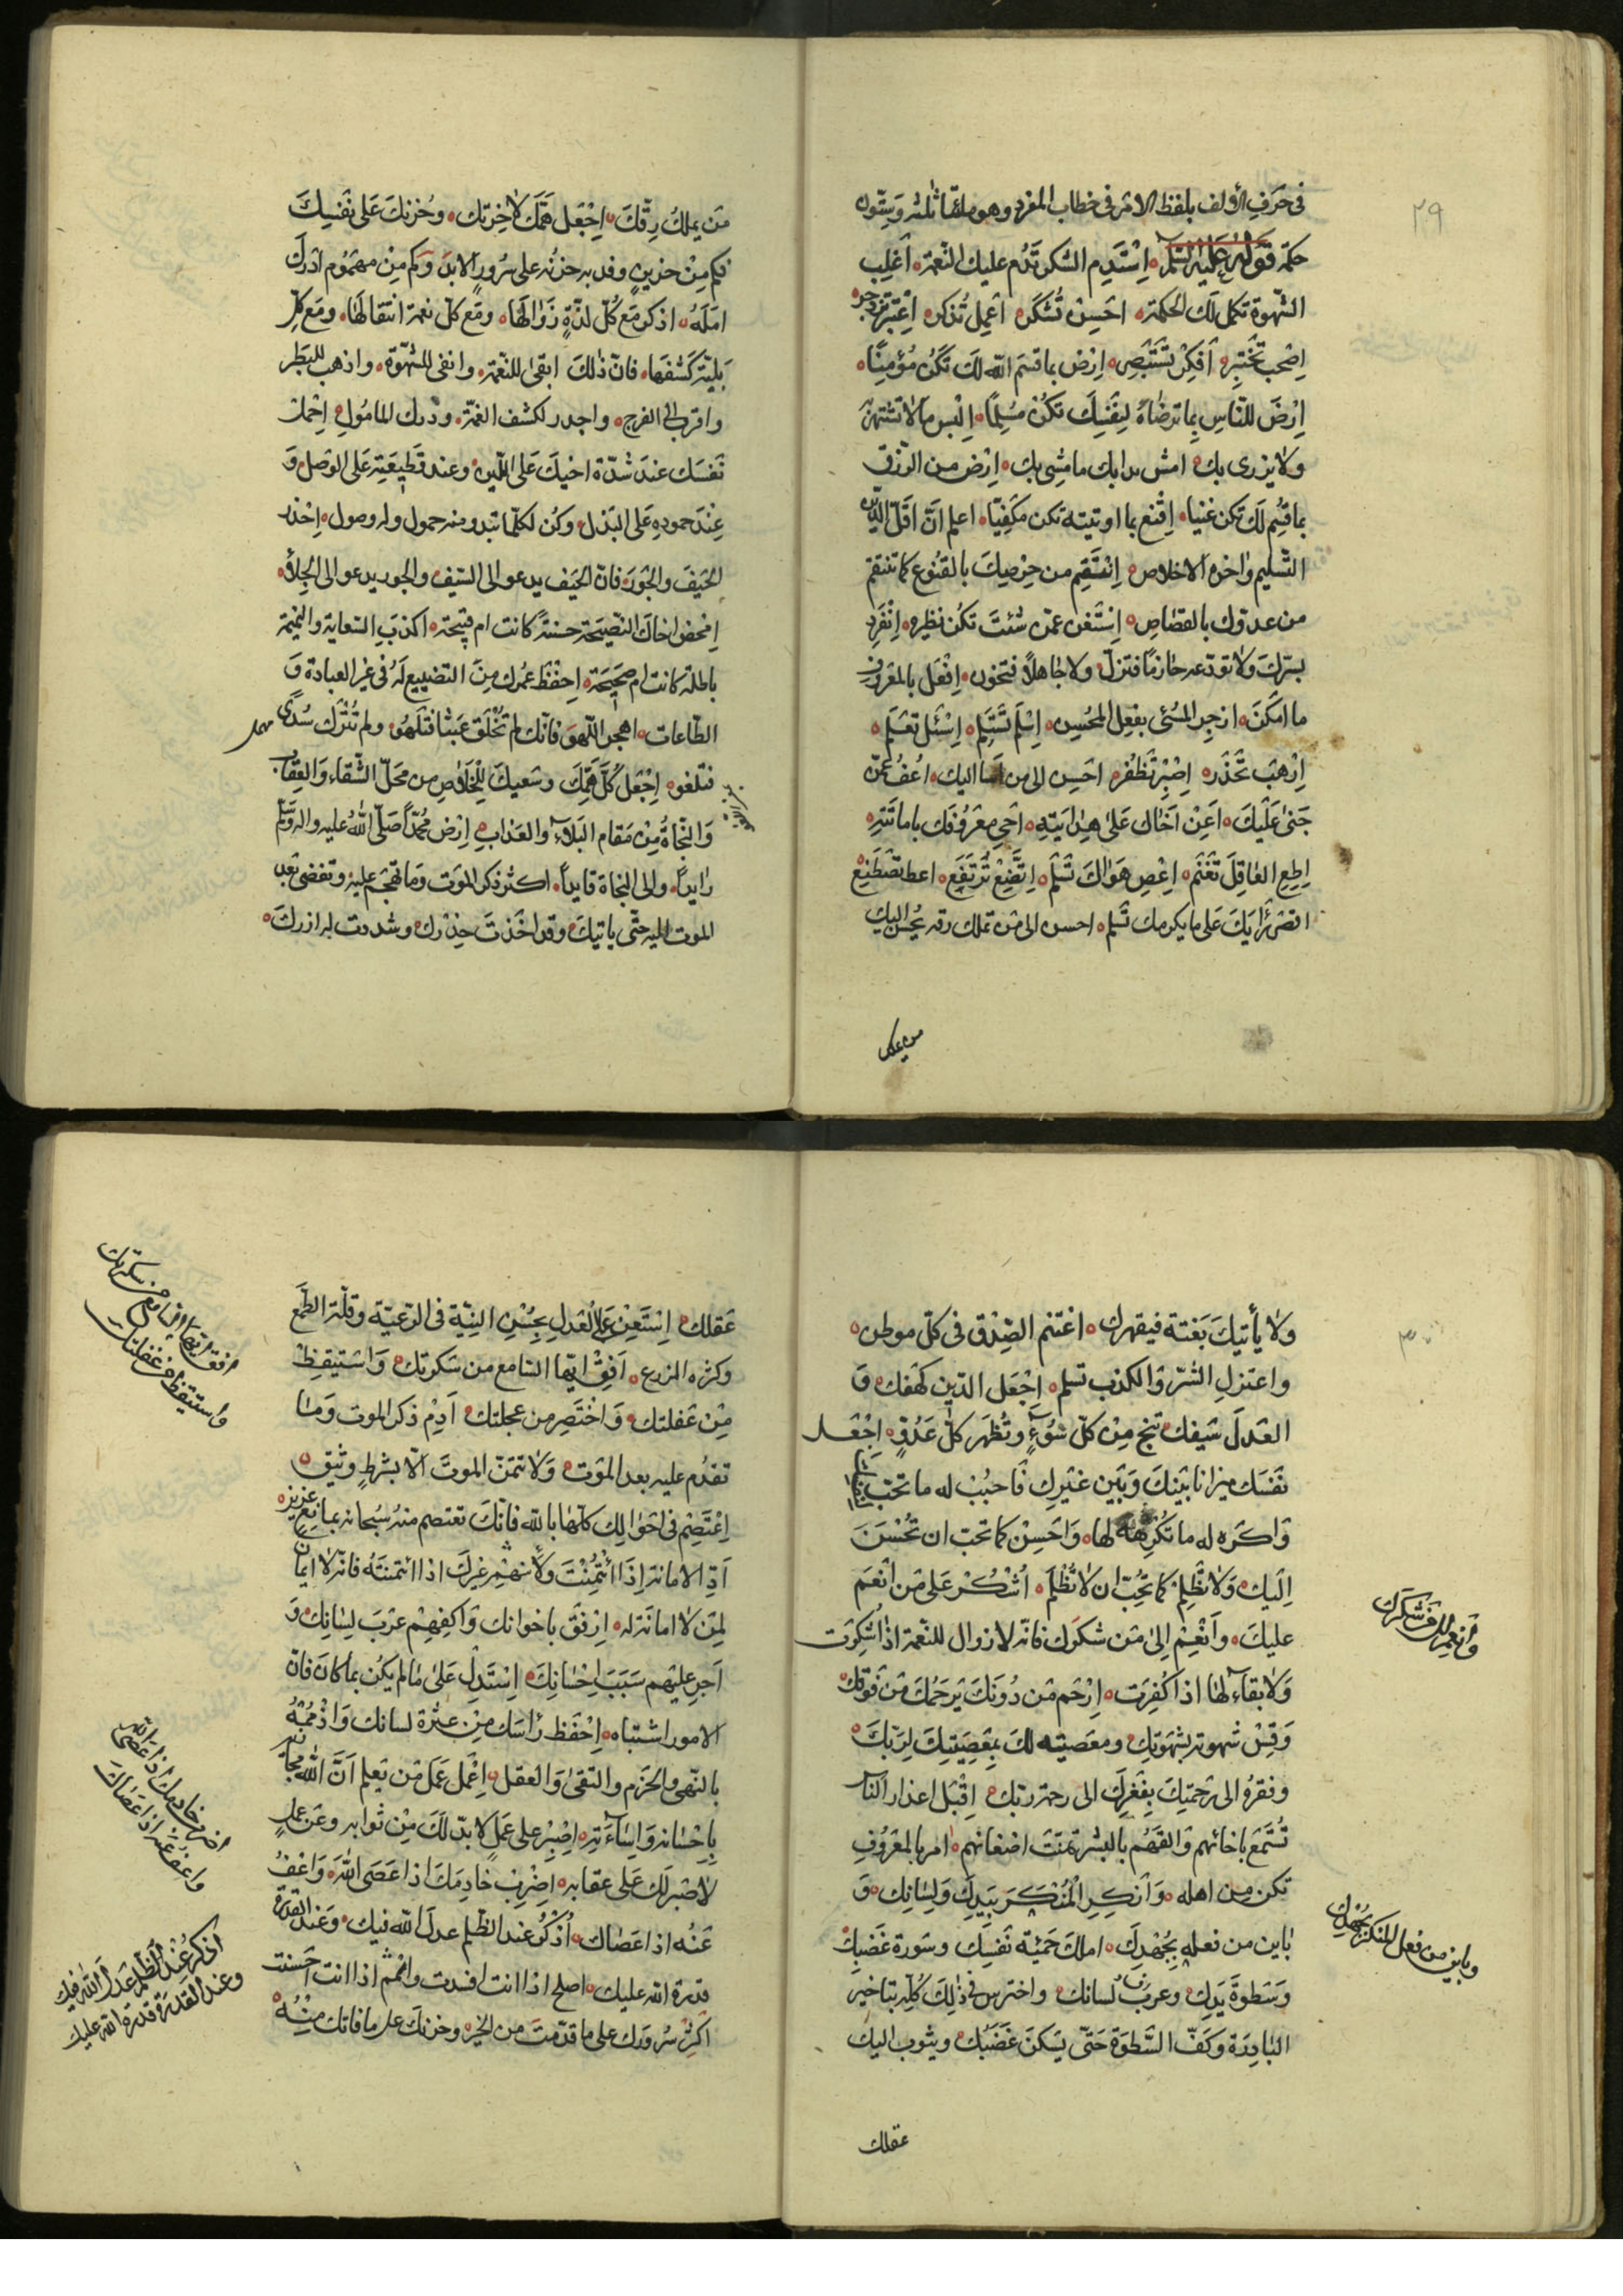 في حرف الألف بلفظ الامر في خطاب المفرد وهو مائتا ثلثه وستون
٢٩
حكمة قوله عليه السلم اِسْتَدِم الشكر تَدُم عليك النّعمة اَغلِب
الشّهوة تكمل لك الحكمة احسِنْ تُشكَر اعمِل تُذكر اِعْتَبِر تزدجر
اِصْحَب تَختَبِر اَفكِرْ تَسْتَبْصِر اِرْضَ بما قسَمَ اللّه لَكَ تَكُن مُؤمِنًا
اِرْضَ للنّاسِ بِما تَرضاهُ لِنَفسِكَ تكُنْ مُسلِمًا اِلْبس مالا تشتهرُ
ولا يزرى بك امش بدابك ما مشى بك اِرْض من الرّزق
بما قُسِم لك تكن غنيا اِقْنع بما اوتيته تكن مكفِيّا اعلم انّ اوّل الدّين
التّسليم واخره الاخلاص اِنْتَقِم من حِرْصِكَ بالقنُوع كما تنتقم
من عدوك بالقصاص اِسْتَغن عمّن شئتَ تكُن نظيره اِنْفَرِد
بسرّكَ ولا تودعه حازمًا فتزلّ ولا جاهلًا فتخون اِفْعَل بالمعْرُوف
ما امكَنَ ازجر المُسئ بفِعل المُحسِن اِسْلَم تَسْتَلِم اِسْئَل تعْلَم
اِرْهَب تَحْذَر اِصْبِر تَظْفُر احسِن الى من اَسا اليك اُعْفُ عمّن
جَنى عَلَيكَ اَعِنْ اَخاك عَلى هِدايَتِهِ اَحْيِ معرُوفَك باماتته
اِطِع العاقِلَ تَغْنَم اِعْصِ هَواكَ تَسْلَم اِتَّضِعْ تَرْتَفِع اعط تصطنع
اقصر رَأيَكَ على ما يكرمك تَسلم احسن الى من تملك رقه يُحسن اليك
من يملك
مَن يملكُ رِقّكَ اِجْعَل هَمَّكَ لاخِرتك وحُزنكَ عَلى نفسِكَ
فكم مِنْ حزينٍ وفد به حزنه على سُرُورِ الابد وَكم مِن مهمُوم ادركَ
امَلَهُ اذكر مَع كُلّ لذّةٍ زَوالها ومَع كلّ نعمة انتقالها ومَع كلّ
بَليّة كَشفَها فانّ ذلكَ ابقى للنّعمة وانفى للشّهوة واذهب للبَطر
واقرب الى الفرج واجدر لكشف الغمّة ودرك المامُول اِحْمل
نَفسَك عندَ شدّة اخيك على اللّين وعند قطيعَتِه على الوَصل وَ
عِنْدَ جموده على البَذل وكُن لكلّما تبدو منه حمول وله وصول اِحْذر
الحَيفَ والجَورَ فانّ الحَيف يدعو الى السّيف والجور يدعو الى الجلاء
اِمْحض اخاكَ النّصيحَة حسنةً كانت ام قبيحة اكذب السّعاية والنّميمة
باطلة كانت ام صَحيحَة اِحْفَظ عُمرك مِنَ التضييع لَهُ في غير العبادة وَ
الطّاعات اهجر اللّهوَ فانّك لم تُخْلَق عَبَثًا فتَلهُو ولم تُتْرَك سُدًى
مهمل
فتلغو اِجْعَل كُلّ هَمِّكَ وسَعيكَ لِلْخَلاصِ من مَحلّ الشّقاء والعِقاب
وَالنّجاةُ مِنْ مَقام البَلاءِ والعَذاب اِرْضَ مُحمّدًا صَلّى اللّهُ عليه واله وسلّم
رايدًا والى النجاة قايدًا اكثر ذكر المَوت وَما تهجم عليه وتفضى بَعد
الموت اليه حتّى ياتيكَ وقد اخَذتَ حِذرك وشددت له ازركَ
ولا يَأتيكَ بَغتة فيقهرك اغتنم الصّدْق في كلّ موطن
٣٠
واعتزل الشّرّ وَالكذب تسلم اِجْعَل الدّين كهفك وَ
العَدلَ سَيفك تنج مِنْ كلّ سُوءٍ وتُظهَر كلّ عَدُوٍّ اِجْعَل
نَفسَك ميزانا بَيْنَكَ وَبَين غَيرِك فَاحبُبْ له ما تحبّ لها
وَاكره له ما تكرهه لها وَاحسِنْ كما تحبّ ان تُحْسَنَ
اِلَيك وَلا تَظْلِم كما تُحِبّ ان لا تُظْلَم اُشكُر على مَن اَنعَمَ
عليكَ وَاَنْعِمْ اِلى مَن شكرَك فانّه لا زوال للنّعمة اذا شُكِرت
وانعم الى من شكرك
وَلا بقاء لها اذا كُفِرَت اِرْحَم مَن دُونَكَ يَرحَمُك مَن فوقك
وَقِسْ شهوته بشهوَتِك ومعصيته لكَ بِمَعصِيَتِكَ لِربّكَ
وفقرهُ الى رَحمتِكَ بِفَقرِكَ الى رحمة ربّك اِقْبَل اعذار النّاس
تُسْتَمتع باخائهم وَالقَهُم بالبشر تمتْ اضغانهم امر بالمَعْرُوف
تكن من اهله وَاَنكِر المُنْكَرَ بِيَدِكَ ولِسانِك وَ
بايِن من فعله بِجُهْدِك املك حَميّة نَفسِكَ وسَورة غضبِكَ
وباين من فعل المنكر بجهدك
وَسَطوَةَ يَدِك وعربَ لسانك واحترس في ذلِكَ كلّه بتاخير
البادِرَة وكَفّ السَّطوَة حَتّى يَسكنَ غَضَبُك ويثوب اليك
عقلك
عَقلك اِسْتَعِنْ عَلى العَدلِ بِحُسْنِ النيّة في الرّعيّة وقلّة الطّمَع
وكثره الورع اَفِقْ ايّها السّامع من سَكرتك وَاستَيقِظْ
افق ايها السامع من سكرتك
واستيقظ من غفلتك
مِنْ غفلتك وَاختَصِر من عجلتك اَدِمْ ذكر الموت وَما
تقدُم عليه بعد المَوت وَلا تتمنّ الموتَ الّا بشرطٍ وثيق
اِعْتَصِمْ في احْوالِك كلّها باللّه فانّكَ تعتصم منهُ سُبحانه بمانِعٍ عزيز
اَدِّ الامانة اِذَا ائْتُمِنْتَ ولا تتّهِم غيركَ اذا ائتمنتَهُ فانّه لا ايمان
لِمَن لا امانة له اِرْفق باخوانك وَاكفِهِمْ عرْبَ لِسانِك وَ
اَجرِ عليهم سَبَبَ اِحْسانِكَ اِسْتَدِلّ عَلى ما لم يكُن بما كان فانّ
الامور اشتباه اِحْفَظ رأسَك مِنْ عثرة لسانك وَاذممه
بالنّهى والحَزم والتّقى وَالعقل اِعْمل عمَل مَن يَعلم اَنّ اللّه مُجازيه
بِاِحْسانه وَاِساءَتِه اِصْبِر على عَمَلٍ لا بدّ لَكَ مِنْ ثوابه وعن عملٍ
لا صَبر لَك عَلى عقابه اِضْرِبْ خادِمَكَ اذا عَصَى اللّهَ وَاعْفُ
اضرب خادمك اذا عصى الله
واعف عنه اذا عصاك
عَنْهُ اذا عَصاك اُذكُر عند الظّلم عدلَ اللّه فيك وَعند القدرة
قدرة اللّه عليك اصلح اذا انت افسدت واتمم اذا انت احسنت
اذكر عند الظلم عدل الله فيك
وعند القدرة قدرة الله عليك
اكثِر سُرورَك على ما قدّمتَ من الخير وحزنك على ما فاتك مِنْهُ